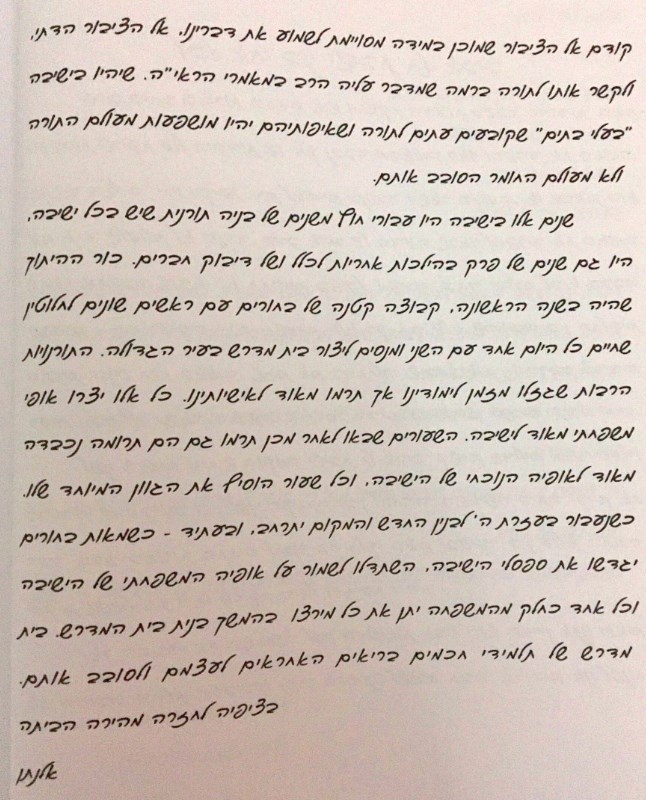 קודם אל הציבור שמוכן במידה מסויימת לשמוע את דברינו, אל הציבור הדתי,
ולקשר אותו לתורה ברמה שמדבר עליה הרב במאמרי הראי"ה. שיהיו בישיבה
"בעלי בתים" שקובעים עתים לתורה ושאיפותיהם יהיו מושפעות מעולם התורה
ולא מעולם החומר הסובב אותם.
שנים אלו בישיבה היו עבורי חוץ משנים של בניה תורנית שיש בכל ישיבה,
היו גם שנים של פרק בהילכות אחריות לכלל ושל דיבוק חברים. כור ההיתוך
שהיה בשנה הראשונה, קבוצה קטנה של בחורים עם ראשים שונים לחלוטין
שחיים כל היום אחד עם השני ומנסים ליצור בית מדרש בעיר הגדולה. התורנויות
הרבות שגזלו מזמן לימודינו אך תרמו מאוד לאישיותינו. כל אלו יצרו אופי
משפחתי מאוד לישיבה. השעורים שבאו לאחר מכן תרמו גם הם תרומה נכבדה
מאוד לאופיה הנוכחי של הישיבה, וכל שעור הוסיף את הגוון המיוחד שלו.
כשנעבור בעזרת ה' לבנין החדש והמקום יתרחב, ובעתיד - כשמאות בחורים
יגדשו את ספסלי הישיבה, השתדלו לשמור על אופיה המשפחתי של הישיבה
וכל אחד כחלק מהמשפחה יתן את כל מירצו בהמשך בנית בית המדרש. בית
מדרש של תלמידי חכמים בריאים האחראים לעצמם ולסובב אותם.
בציפיה לחזרה מהירה הביתה
אלנתן